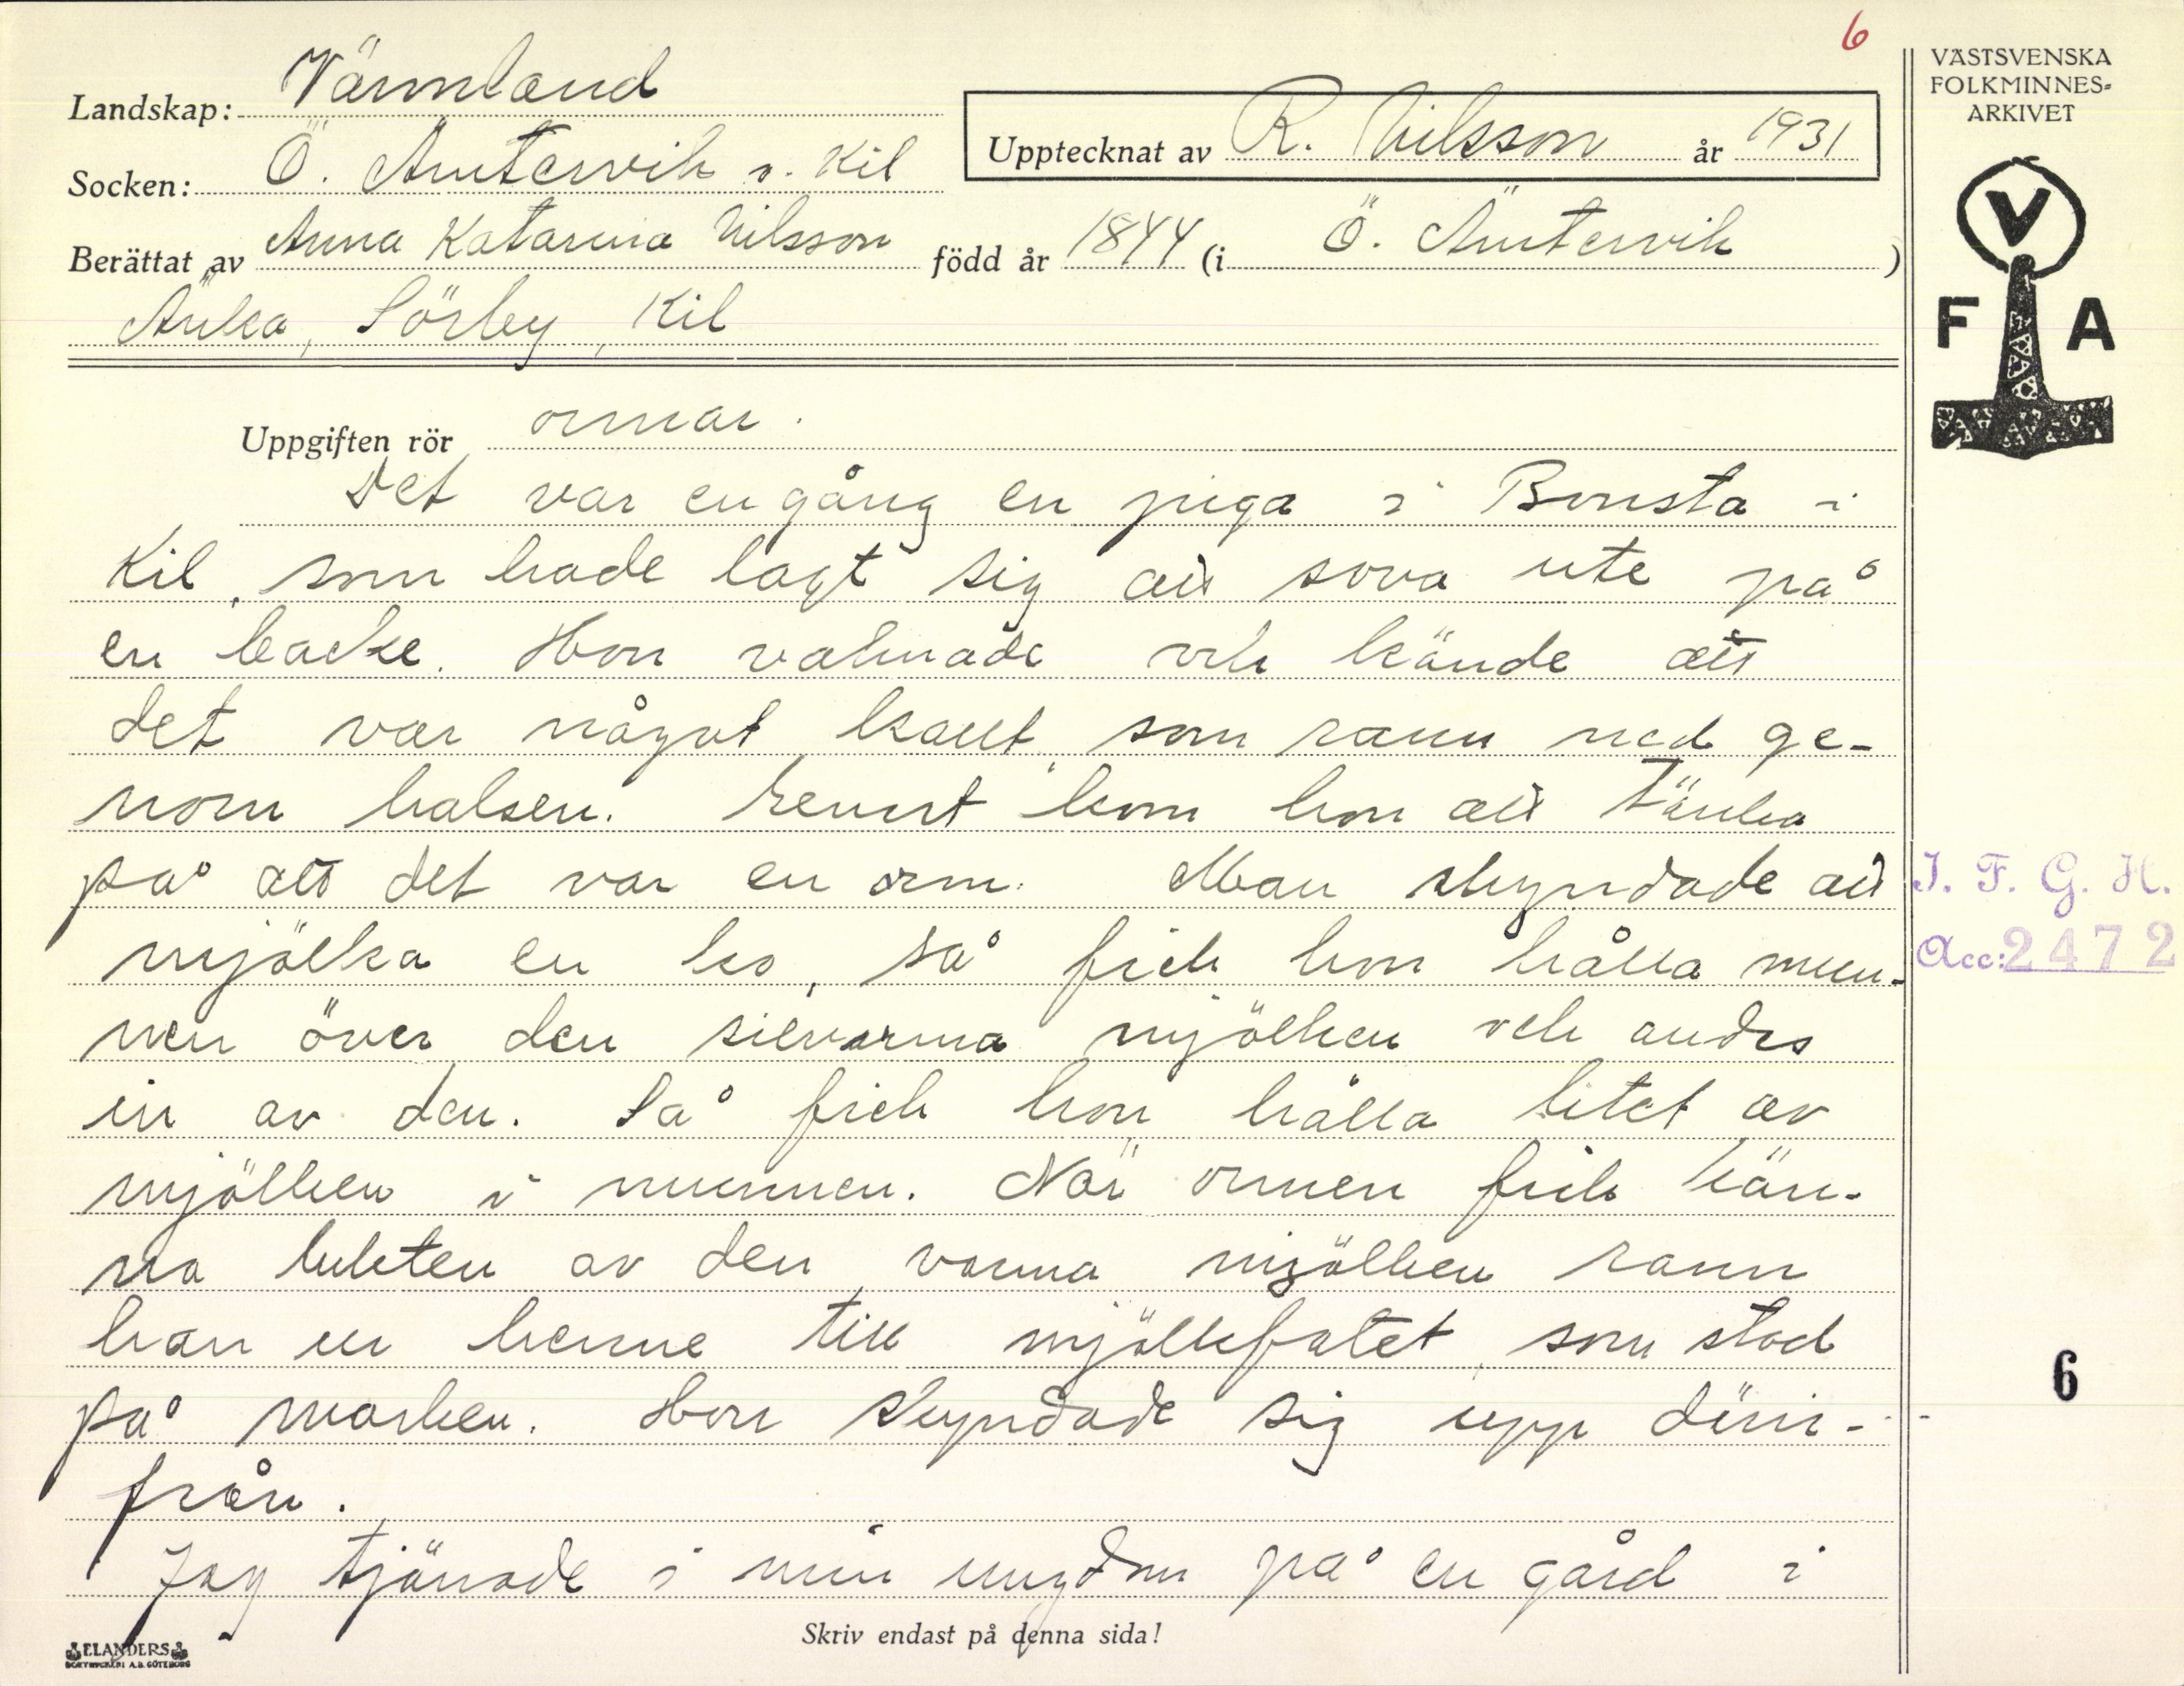 6
VÄSTSVENSKA
FOLKMINNES-
ARKIVET
Landskap: Värmland
Upptecknat av R. Nilsson år 1931
Socken: Ö. Ämtervik o. Kil
Berättat av Anna Katarina Nilsson född år 1844 (i Ö. Ämtervik )
Änka, Sörby, Kil
V
F A
Uppgiften rör ormar.
Det var en gång en piga i Bonsta i
Kil, som hade lagt sig att sova ute på
en backe. Hon vaknade och kände att
det var något kallt, som rann ned ge-
nom halsen. Genast kom hon att tänka
på att det var en orm. Man skyndade att
mjölka en ko, så fick hon hålla mun-
nen över den silvarma mjölken och andas
in av den. Så fick hon hålla litet av
mjölken i munnen. När ormen fick kän-
na lukten av den varma mjölken rann
han ur henne till mjölkfatet, som stod
på marken. Hon skyndade sig upp därir-
från.
Jag tjänade i min ungdom på en gård i
I. F. G. H.
Acc: 2472
6
Skriv endast på denna sida!
ELANDERS
BOKTRYCKERI A.B. GÖTEBORG